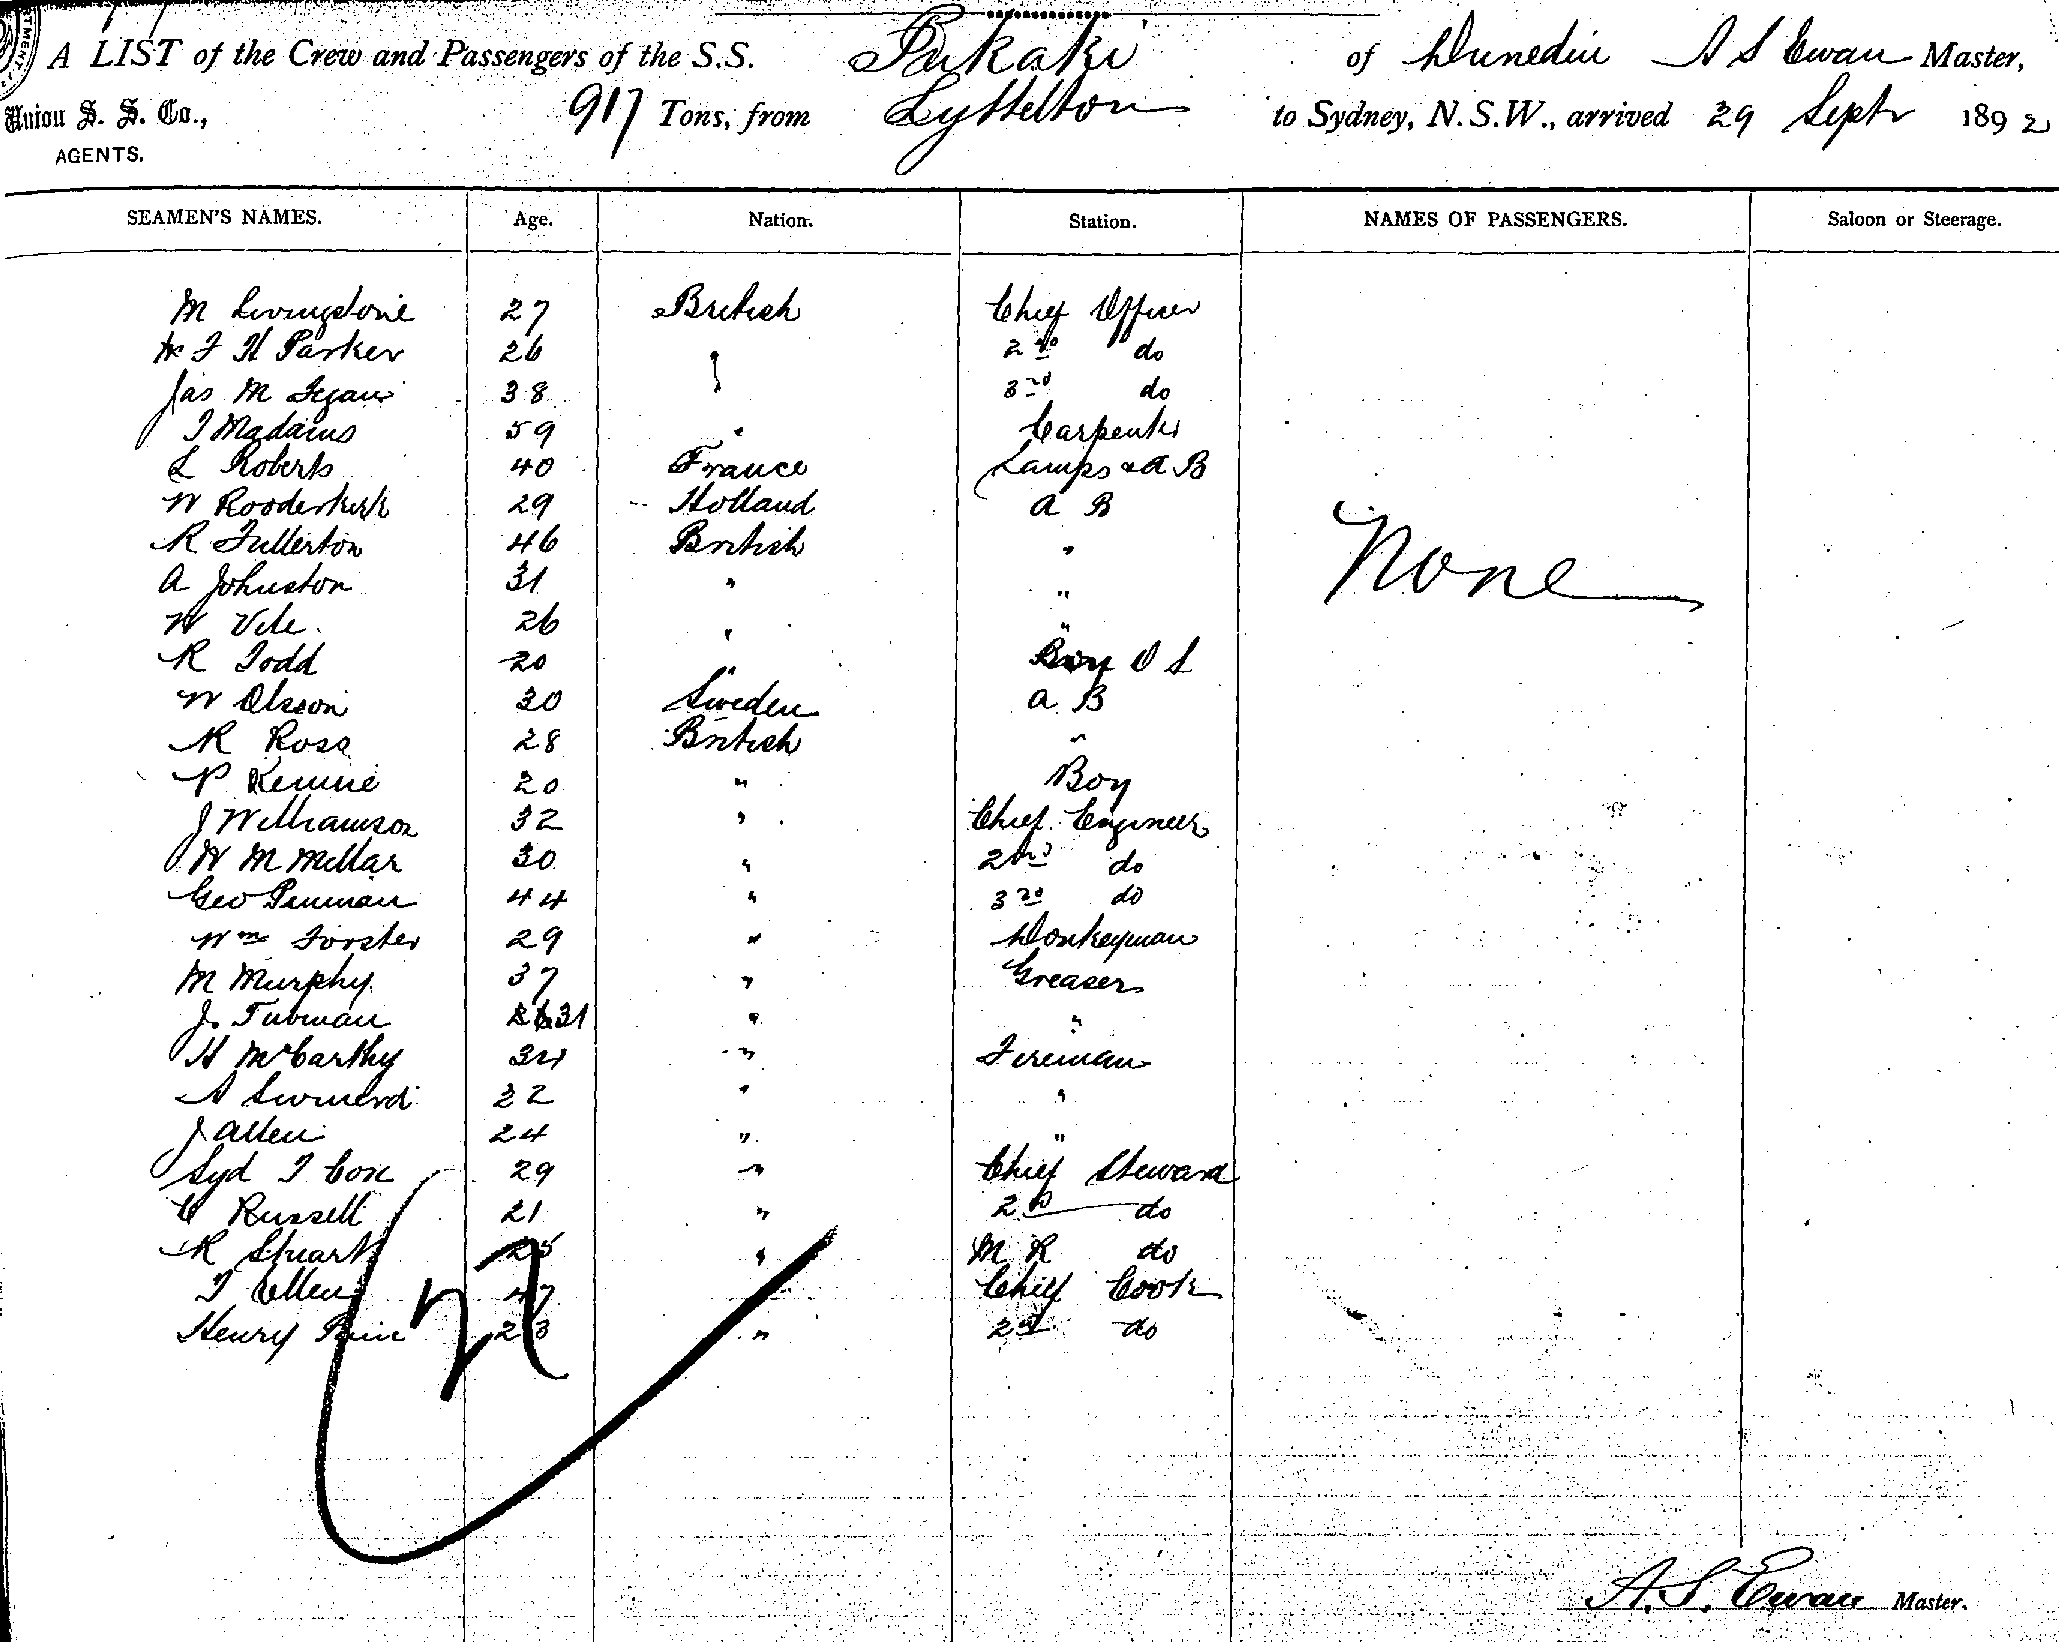 A LIST of the Crew and Passengers of the S.S. Pukaki of Dunedin A S Ewan Master,
Union S. S. Co., 917 Tons, from Lyttelton to Sydney, N.S.W., arrived 29 Septr 1892
AGENTS.
SEAMEN'S NAMES. Age. Nation. Station. NAMES OF PASSENGERS. Saloon or Steerage.
M Livingstone 27 British Chief Officer
F H Parker 26 2nd do
Jas M 38 3rd do
59 " Carpenter
L Roberts 40 France Lamps & A B
W Rooderkerk 29 Holland A B
R Fullerton 46 British "
None
A Johnston 31 " "
W 26 " "
R Todd 20 " Boy O S
W Olsson 30 Sweden A B
R Ross 28 British "
P Rennie 20 " Boy
J Williamson 32 " Chief Engineer
W M Millar 30 " 2nd do
Geo Penman 44 " 3rd do
Wm Forster 29 " Donkeyman
M Murphy 37 " Greaser
J. Tubman 31 " "
H McCarthy 34 " Fireman
A 22 " "
J Allen 24 " "
Syd T Cox 29 " Chief Steward
C Russell 21 " 2nd do
R Stuart 25 " M R do
T Allen 47 Chief Cook
Henry 23 " 2nd do
A. S. Ewan Master.